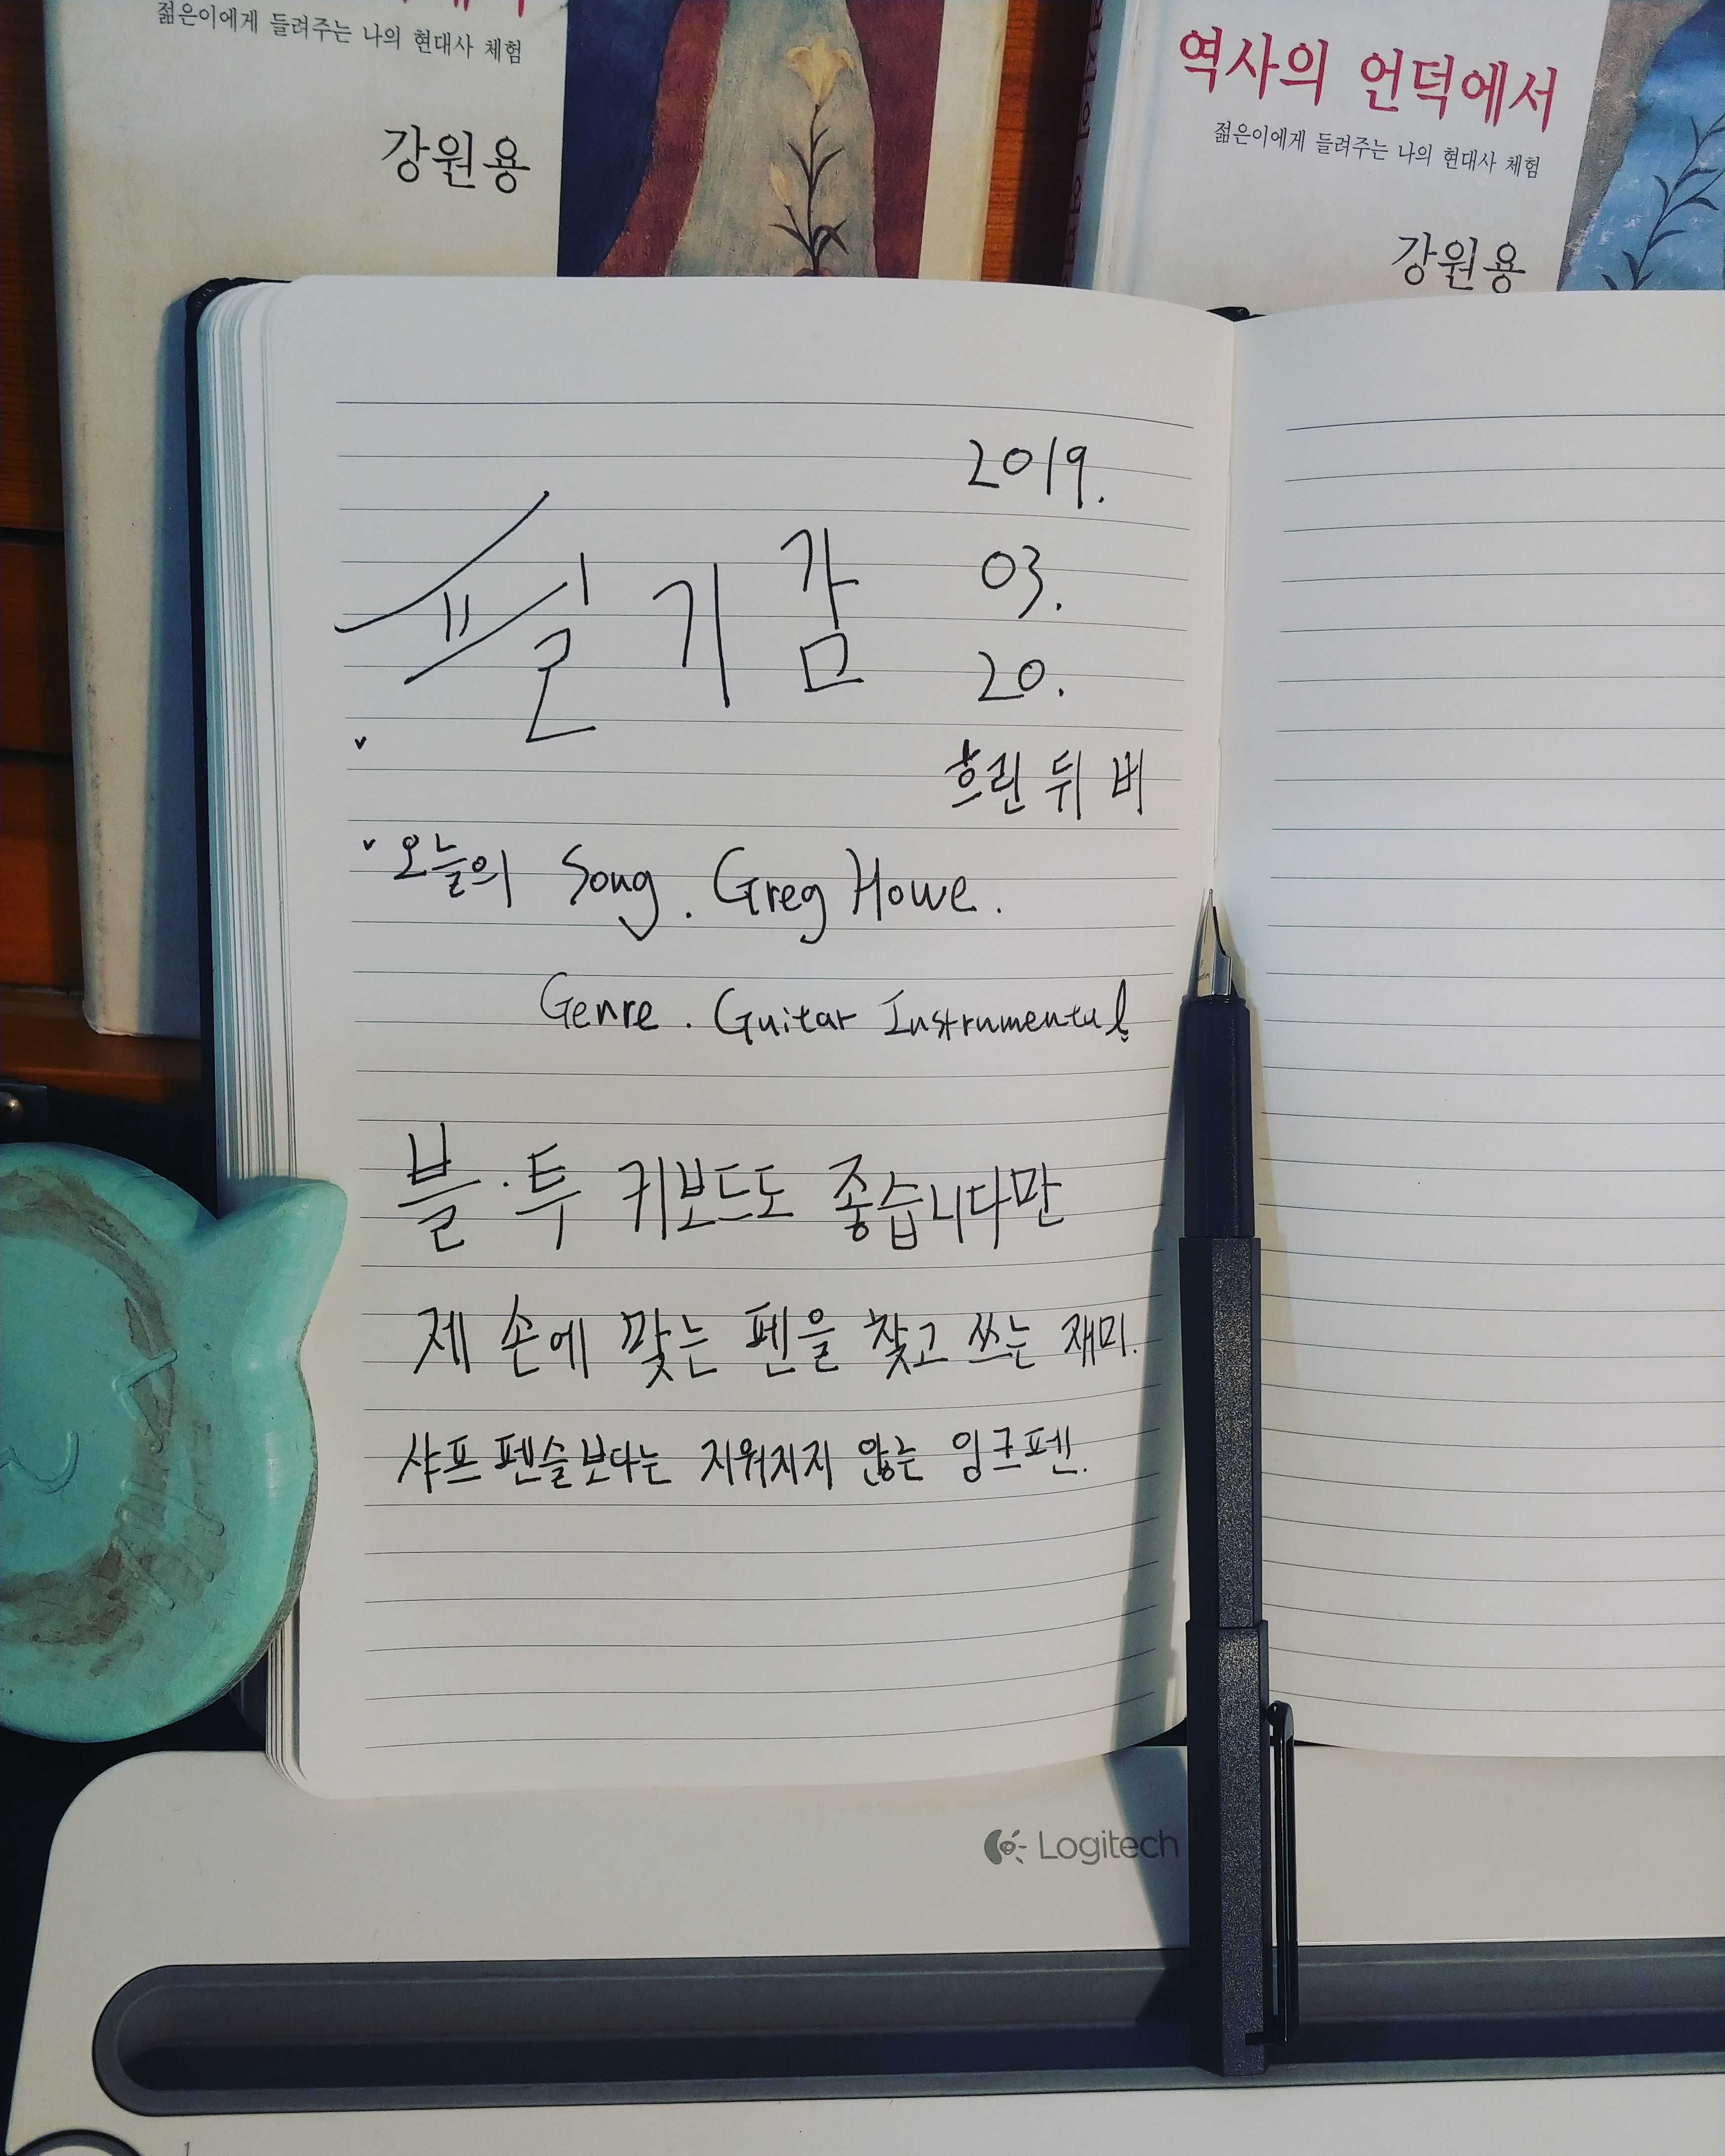 젊은이에게 들려주는 나의 현대사 체험
강원용
역사의 언덕에서
젊은이에게 들려주는 나의 현대사 체험
강원용
2019.
03.
20.
필기감
흐린 뒤 비
오늘의 Song. Greg Howe.
Genre. Guitar Instrumental
블·투 키보드도 좋습니다만
제 손에 맞는 펜을 찾고 쓰는 재미.
샤프 펜슬보다는 지워지지 않는 잉크펜.
Logitech
1